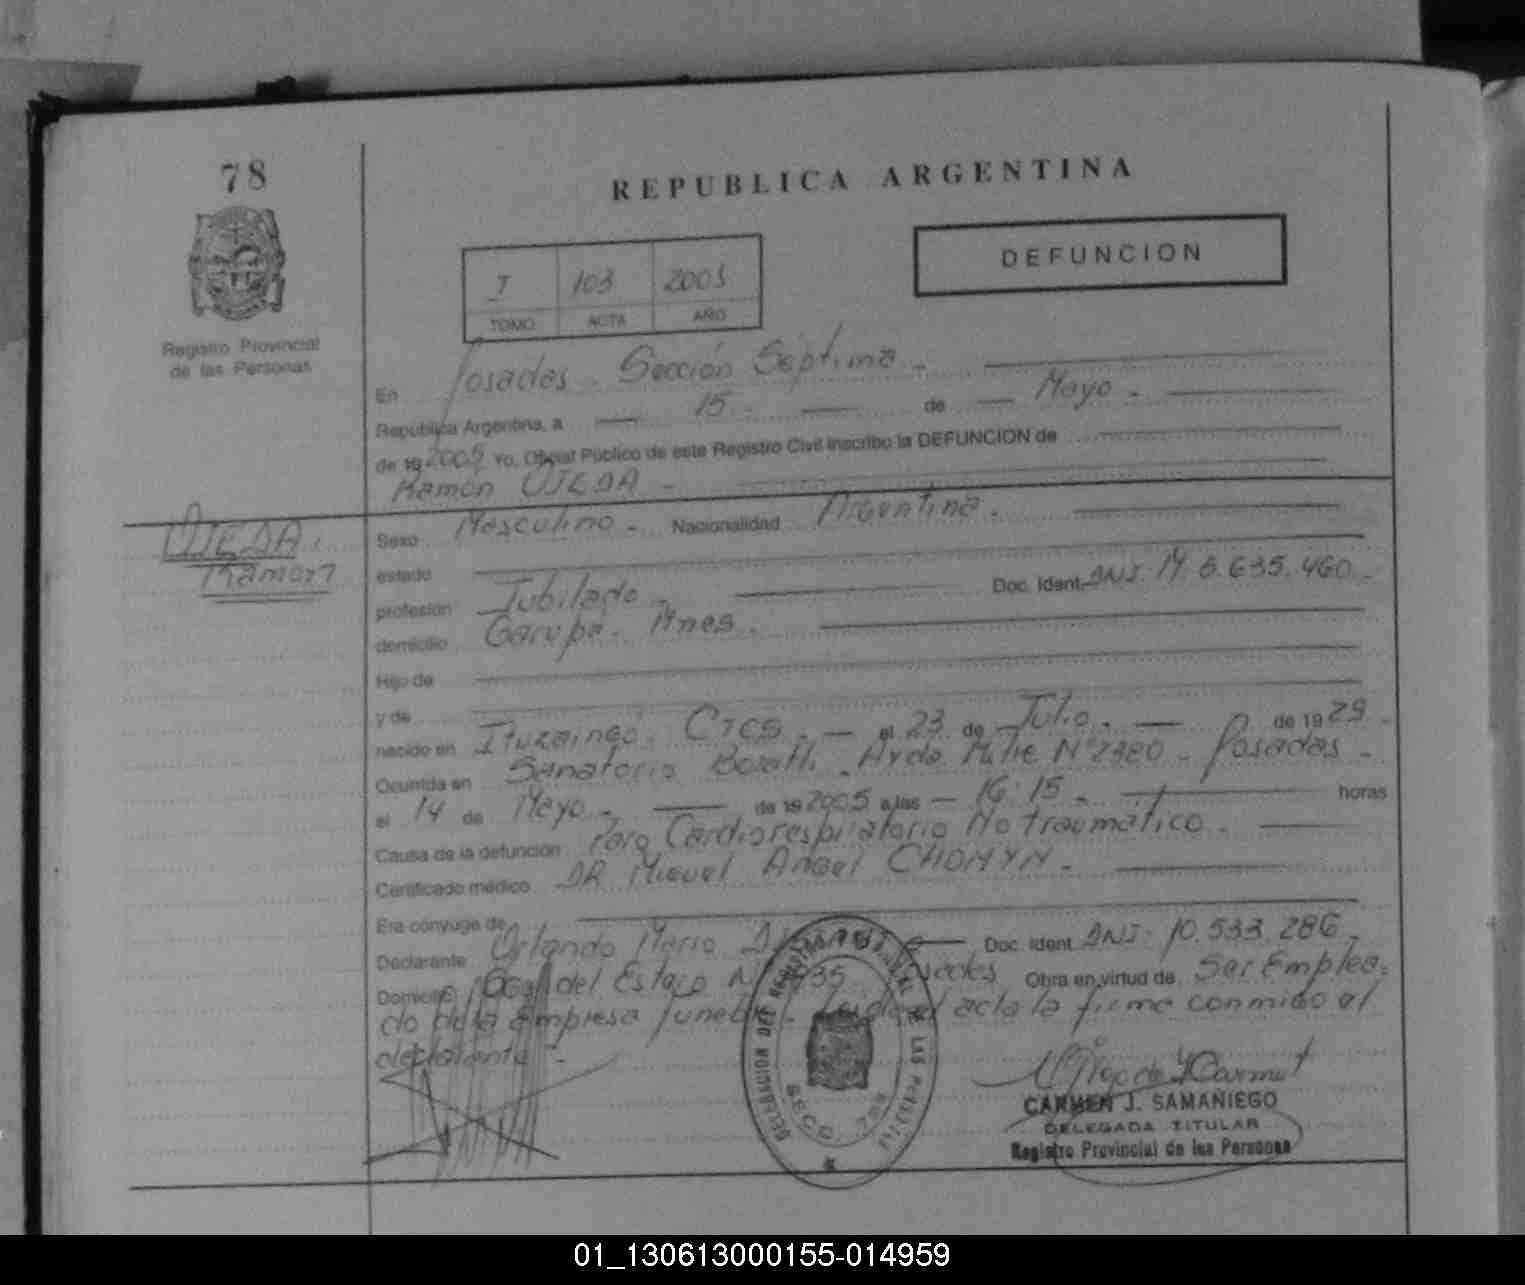 78
REPUBLICA ARGENTINA
DEFUNCION
I 103 2005
TOMO ACTA AÑO
Registro Provincial
de las Personas
En Posadas - Sección Séptima -
República Argentina, a 15 - de Mayo -
de 19 2005 Yo, Oficial Público de este Registro Civil inscribo la DEFUNCION de
Ramón OJEDA -
OJEDA.
Ramón
Sexo Masculino - Nacionalidad Argentina -
estado
profesión Jubilado - Doc. Ident. DNI. M. 5.635.460 -
domicilio Garupá - Mnes -
Hijo de
y de
nacido en Ituzaingó - Ctes - el 23 de Julio - de 19 29 -
Ocurrida en Sanatorio Avda Mitre Nº 2380 - Posadas -
el 14 de Mayo - de 19 2005 a las 16:15 - horas
Causa de la defunción Paro Cardiorespiratorio No traumático -
Certificado médico DR Miguel Angel CHOMYN -
Era cónyuge de
Declarante Orlando Mario Doc. Ident. DNI: 10.533.286 -
Domicilio del Estero Nº Posadas Obra en virtud de Ser Emplea-
do de la Empresa funebre - Leída el acta la firma conmigo el
declarante -
DELEGACION DEL REGISTRO PROVINCIAL DE LAS PERSONAS
SECC. 7ma
CARMEN J. SAMANIEGO
DELEGADA TITULAR
Registro Provincial de las Personas
01_130613000155-014959